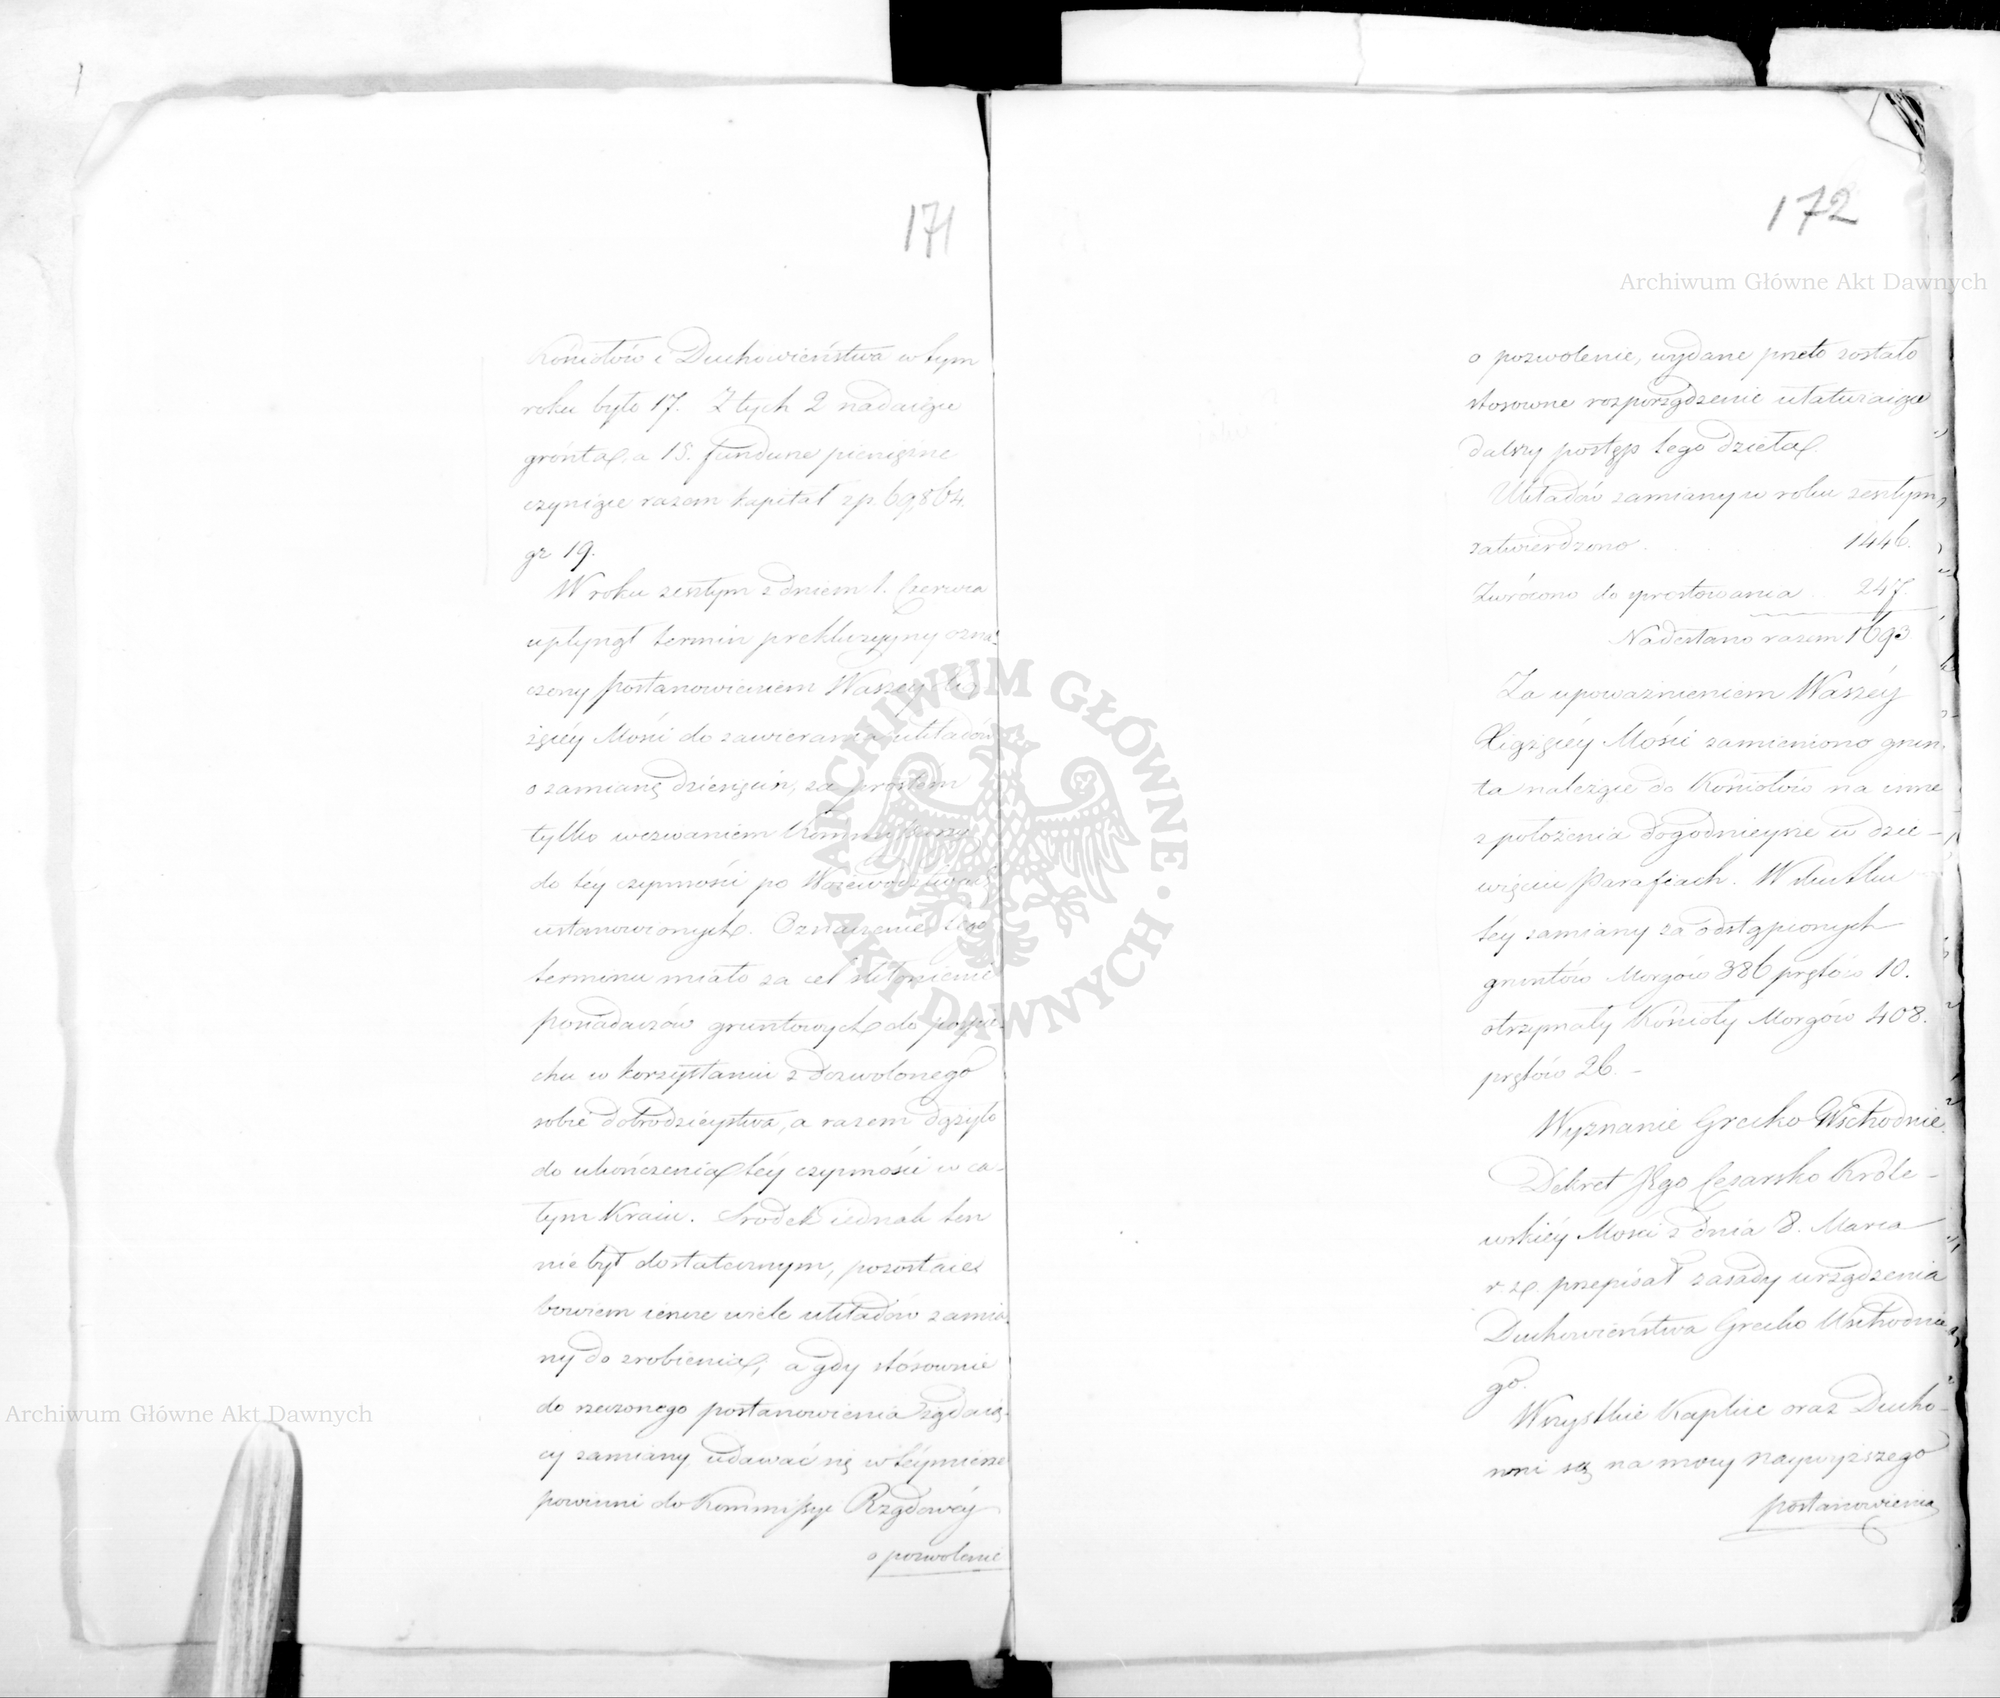 171
Kościołów i Duchowieństwa w tym
roku było 17. Z tych 2 nadaiące
grónta, a 15. fundusze pieniężne
czyniące razem kapitał zp. 69,864.
gr 19.
W roku zeszłym z dniem 1. Czerwca
upłynął termin prekluzyyny ozna-
czony postanowieniem Waszey Xią-
żęcéy Mości do zawierania układów
o zamianę dziesięcin, za prostém
tylko wezwaniem Kommissarzy
do téy czynności po Woiewództwach
ustanowionych. Oznaczenie tego
terminu miało za cel skłonienie
posiadaczów gruntowych do pospie-
chu w korzystaniu z dozwolonego
sobie dobrodzieystwa, a razem dążyło
do ukończenia téy czynności w ca-
łym Kraiu. Srodek iednak ten
nie był dostatecznym, pozostaie
bowiem ieszcze wiele układów zamia-
ny do zrobienia; a gdy stósownie
do rzeczonego postanowienia żądaią-
cy zamiany udawać się w téymierze
powinni do Kommissyi Rządowéy
o pozwolenie
172
o pozwolenie, wydane przeto zostało
stosowne rozporządzenie ułatwiaiące
dalszy postęp tego dzieła.
Układów zamiany w roku zeszłym
zatwierdzono . . . . . 1446.
Zwrócono do sprostowania . . 247.
Nadesłano razem 1693
Za upoważnieniem Waszéy
Xiążęcéy Mości zamieniono grun-
ta należące do Kościołów na inne
z położenia dogodnieysze w dzie-
więciu Parafiach. W skutku
téy zamiany za odstąpionych
gruntów Morgów 386 prętów 10.
otrzymały Kościoły Morgów 408.
prętów 26. -
Wyznanie Grecko Wschodnie.
Dekret JEgo Cesarsko Króle-
wskiéy Mości z dnia 8. Marca
r. z. przepisał zasady urządzenia
Duchowieństwa Grecko Wschodnie-
go.
Wszystkie Kaplice oraz Ducho-
wni są na mocy naywyższego
postanowienia
Archiwum Główne Akt Dawnych
Archiwum Główne Akt Dawnych
ARCHIWUM GŁÓWNE
· AKT DAWNYCH ·